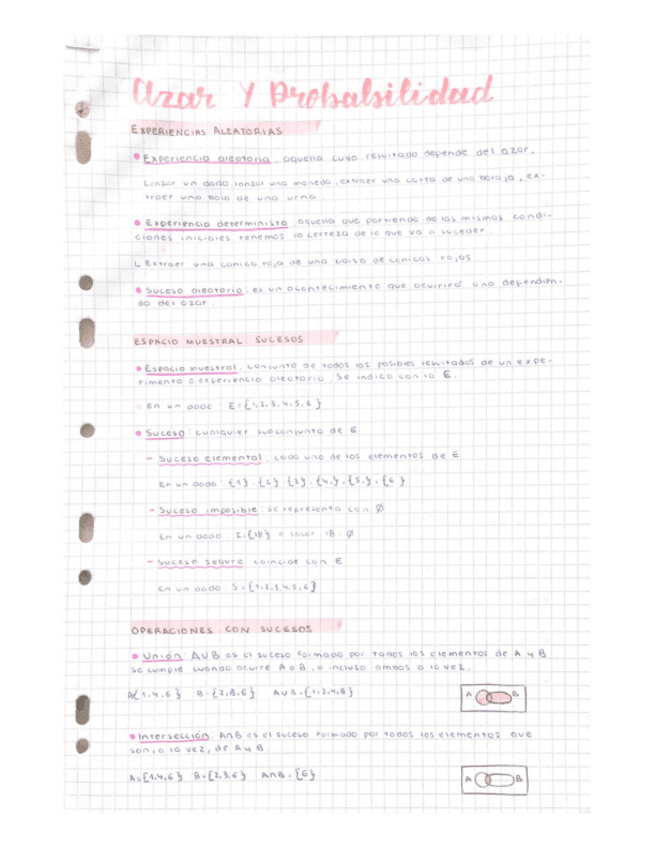 Azar Y Probabilidad
EXPERIENCIAS ALEATORIAS
Experiencia aleatoria: aquella cuyo resultado depende del azar.
Lanzar un dado, lanzar una moneda, extraer una carta de una baraja, ex-
traer una bola de una urna.
Experiencia determinista: aquella que partiendo de las mismas condi-
ciones iniciales tenemos la certeza de lo que va a suceder.
Extraer una canica roja de una bolsa de canicas rojas
Suceso aleatorio: es un acontecimiento que ocurrirá o no dependien-
do del azar.
ESPACIO MUESTRAL. SUCESOS
Espacio muestral: conjunto de todos los posibles resultados de un expe-
rimento o experiencia aleatoria. Se indica con la E.
En un dado: E={1,2,3,4,5,6}
Suceso: cualquier subconjunto de E
- Suceso elemental: cada uno de los elementos de E
En un dado: {1}, {2}, {3}, {4}, {5}, {6}
- Suceso imposible: se representa con Ø
En un dado: I={18} o sacar 18: Ø
- Suceso seguro: coincide con E
En un dado: S={1,2,3,4,5,6}
OPERACIONES CON SUCESOS
Unión: AUB es el suceso formado por todos los elementos de A y B
se cumple cuando ocurre A o B, o incluso ambos a la vez.
A{1,4,6} B={2,8,6} AUB={1,2,4,8} A B
Intersección: A∩B es el suceso formado por todos los elementos que
son, a la vez, de A y B
A={1,4,6} B={2,3,6} A∩B={6} A B